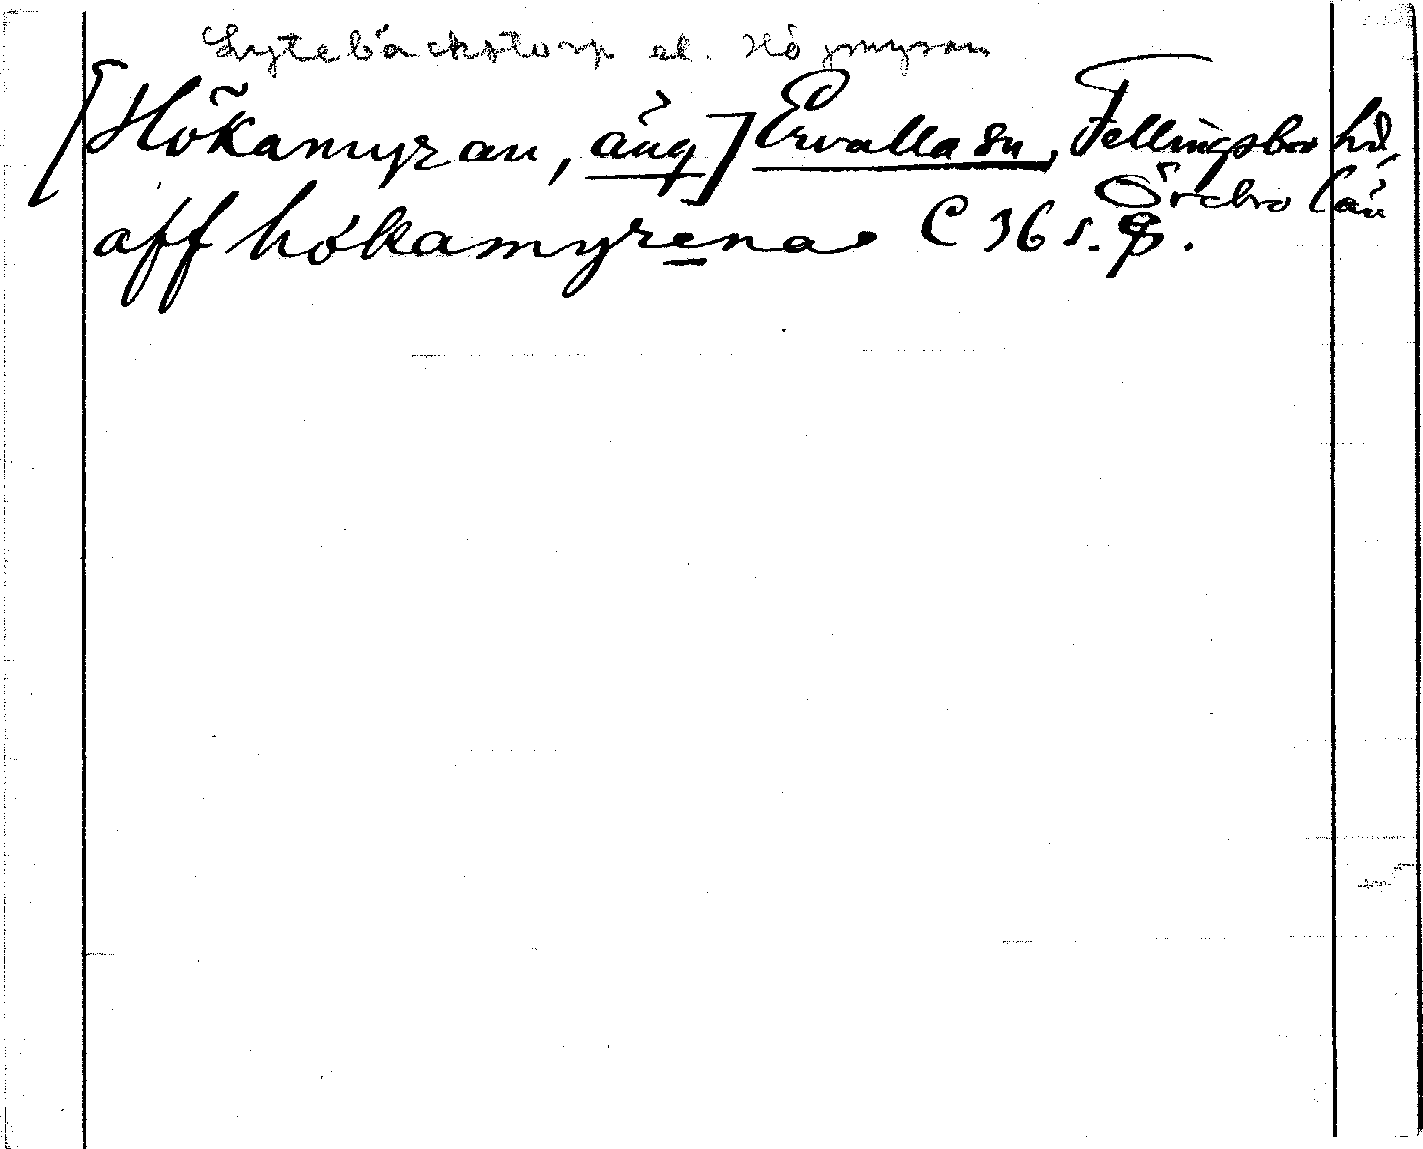 Lytebäckstorp el. Höjmyran
[Hökamyran, äng] Ervalla sn, Fellingsbro hd,
Örebro län
aff hökamyrena C 36 s. 9.